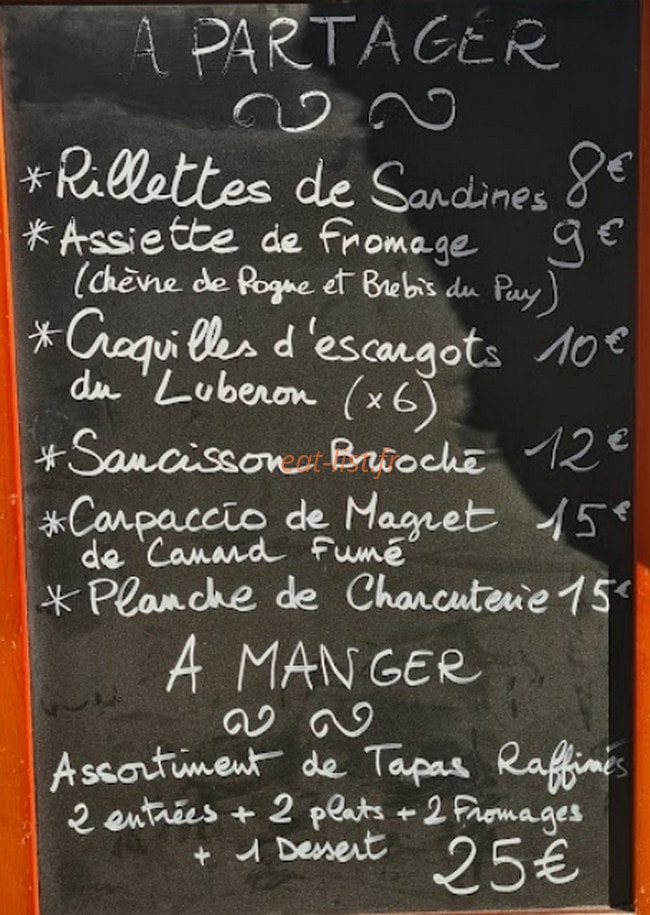 A PARTAGER
* Rillettes de Sardines 8€
* Assiette de Fromage 9€
(Chèvre de Rogne et Brebis du Puy)
* Croquilles d'escargots 10€
du Luberon (x6)
* Saucisson Brioché 12€
eat-list.fr
* Carpaccio de Magret 15€
de Canard Fumé
* Planche de Charcuterie 15€
A MANGER
Assortiment de Tapas Raffinés
2 entrées + 2 plats + 2 Fromages
+ 1 Dessert 25€